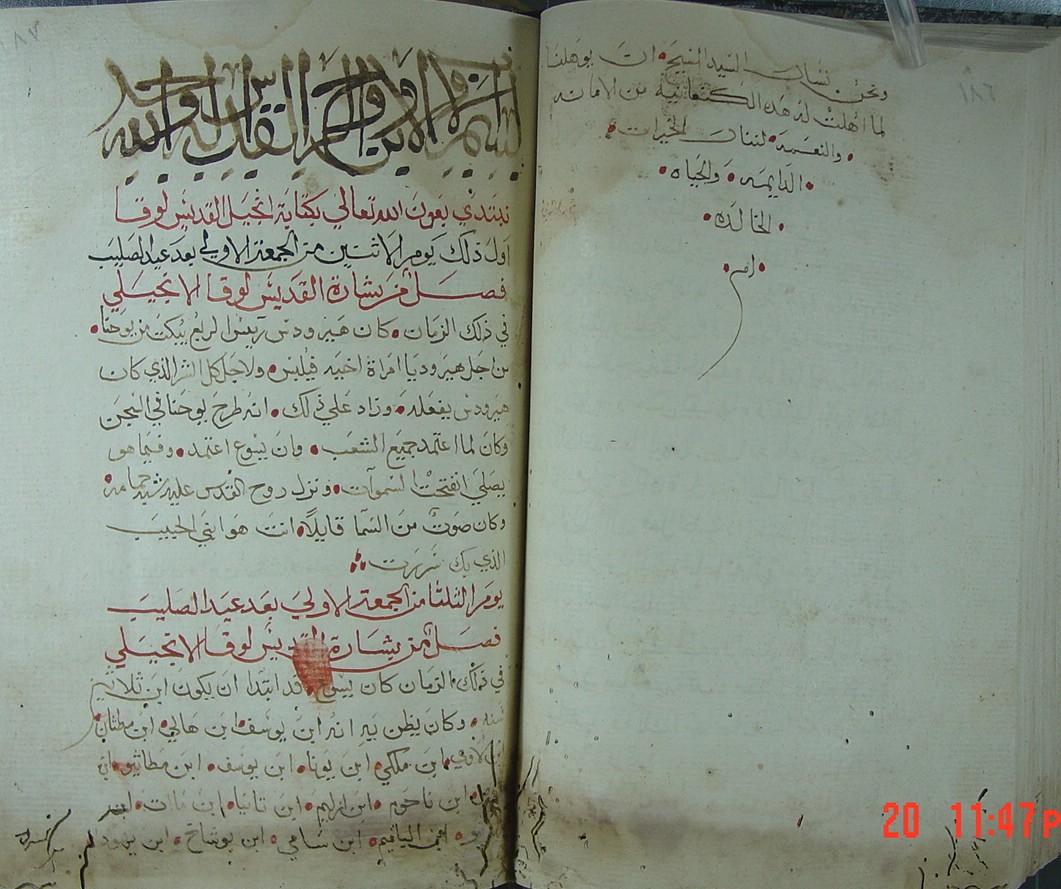 ونحن نسال السيد المسيح• ان يوهلنا
لما اهلت له هذه الكنعانية من الامانه
• والنعمه• لننال الخيرات•
• الدايمه• والحياه•
• الخالده•
•امين•
١٨٦
بسم الاب والابن والروح القدس الاله الواحد
نبتدي بعون الله تعالي بكتابة انجيل القديس لوقا
اول ذلك يوم الاثنين من الجمعة الاولي بعد عيد الصليب
فصل من بشارة القديس لوقا الانجيلي
في ذلك الزمان• كان هيرودس رييس الربع يبكت من يوحنا•
من اجل هيروديا امراة اخيه فيلبس• ولاجل كل الشر الذي كان
هيرودس يفعله• وزاد علي ذلك• انه طرح يوحنا في السجن
وكان لما اعتمد جميع الشعب• وان يسوع اعتمد• وفيما هو
يصلي انفتحت السموات• ونزل روح القدس عليه شبه حمامة•
وكان صوت من السما قايلا• انت هو ابني الحبيب
الذي بك سررت
يوم الثلثا من الجمعة الاولي بعد عيد الصليب
فصل من بشارة القديس لوقا الانجيلي
في ذلك الزمان كان يسوع قد ابتدا ان يكون ابن ثلاثين
سنه• وكان يظن به انه ابن يوسف• ابن هالي• ابن مطثان•
ابن لاوي• ابن ملكي• ابن يونا• ابن يوسف• ابن مطاثيو• ابن
ابن ناحوم• ابن ازليم• ابن ابن ماات• ابن
ابن ساعي• ابن يوشاخ• ابن يهودا
20 11:47P